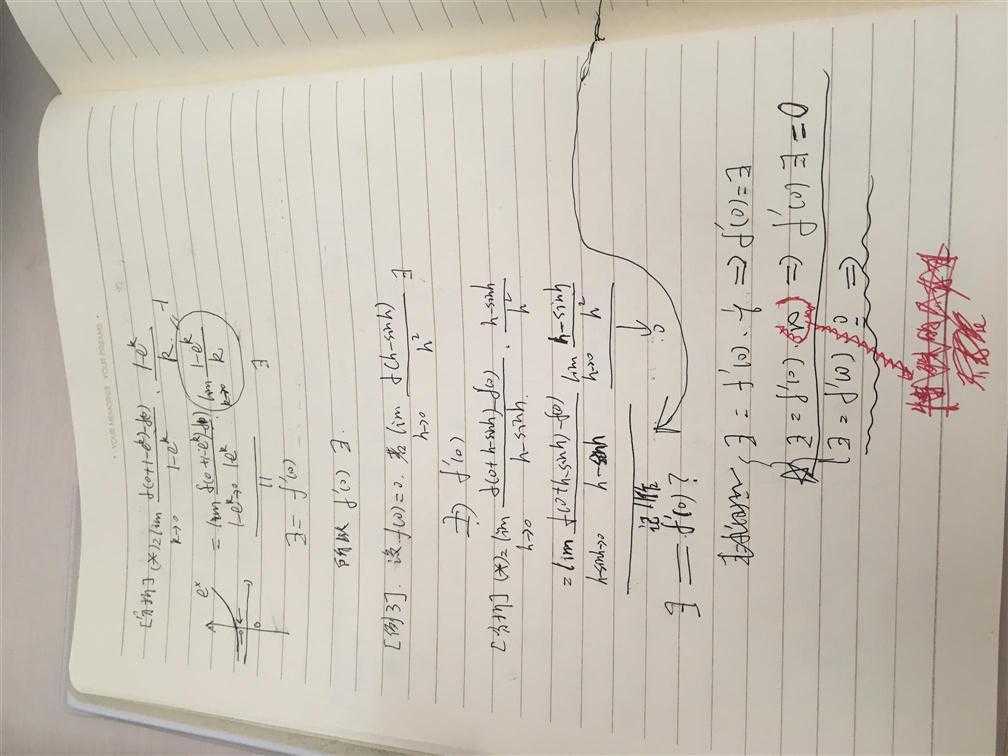 · YOUR MEMORIES · YOUR MOMENTS ·
[分析] (*) = lim_{k→0} \frac{f(0+1-e^k)-f(0)}{1-e^k} · \frac{1-e^k}{k}
= lim_{1-e^k→0} \frac{f(0+1-e^k)-f(0)}{1-e^k} lim_{k→0} \frac{1-e^k}{k} -1
e^x
0
∃ = f'(0) ∃
所以 f'(0) ∃.
[例3]. 设 f(0)=0. 若 lim_{h→0} \frac{f(h-sinh)}{h^2} ∃
⇏ f'(0)
[分析] (*) = lim_{h→0} \frac{f(0+h-sinh)-f(0)}{h-sinh} · \frac{h-sinh}{h^2}
= lim_{h-sinh→0} \frac{f(0+h-sinh)-f(0)}{h-sinh} lim_{h→0} \frac{h-sinh}{h^2}
↓
0
∃ = f'(0)?
∃ = f'(0) · ⇒ f'(0)=∃
∃ = f'(0) · ∞ ⇒ f'(0) ∃ = 0
∃ = f'(0) · 0 ⇒
不能